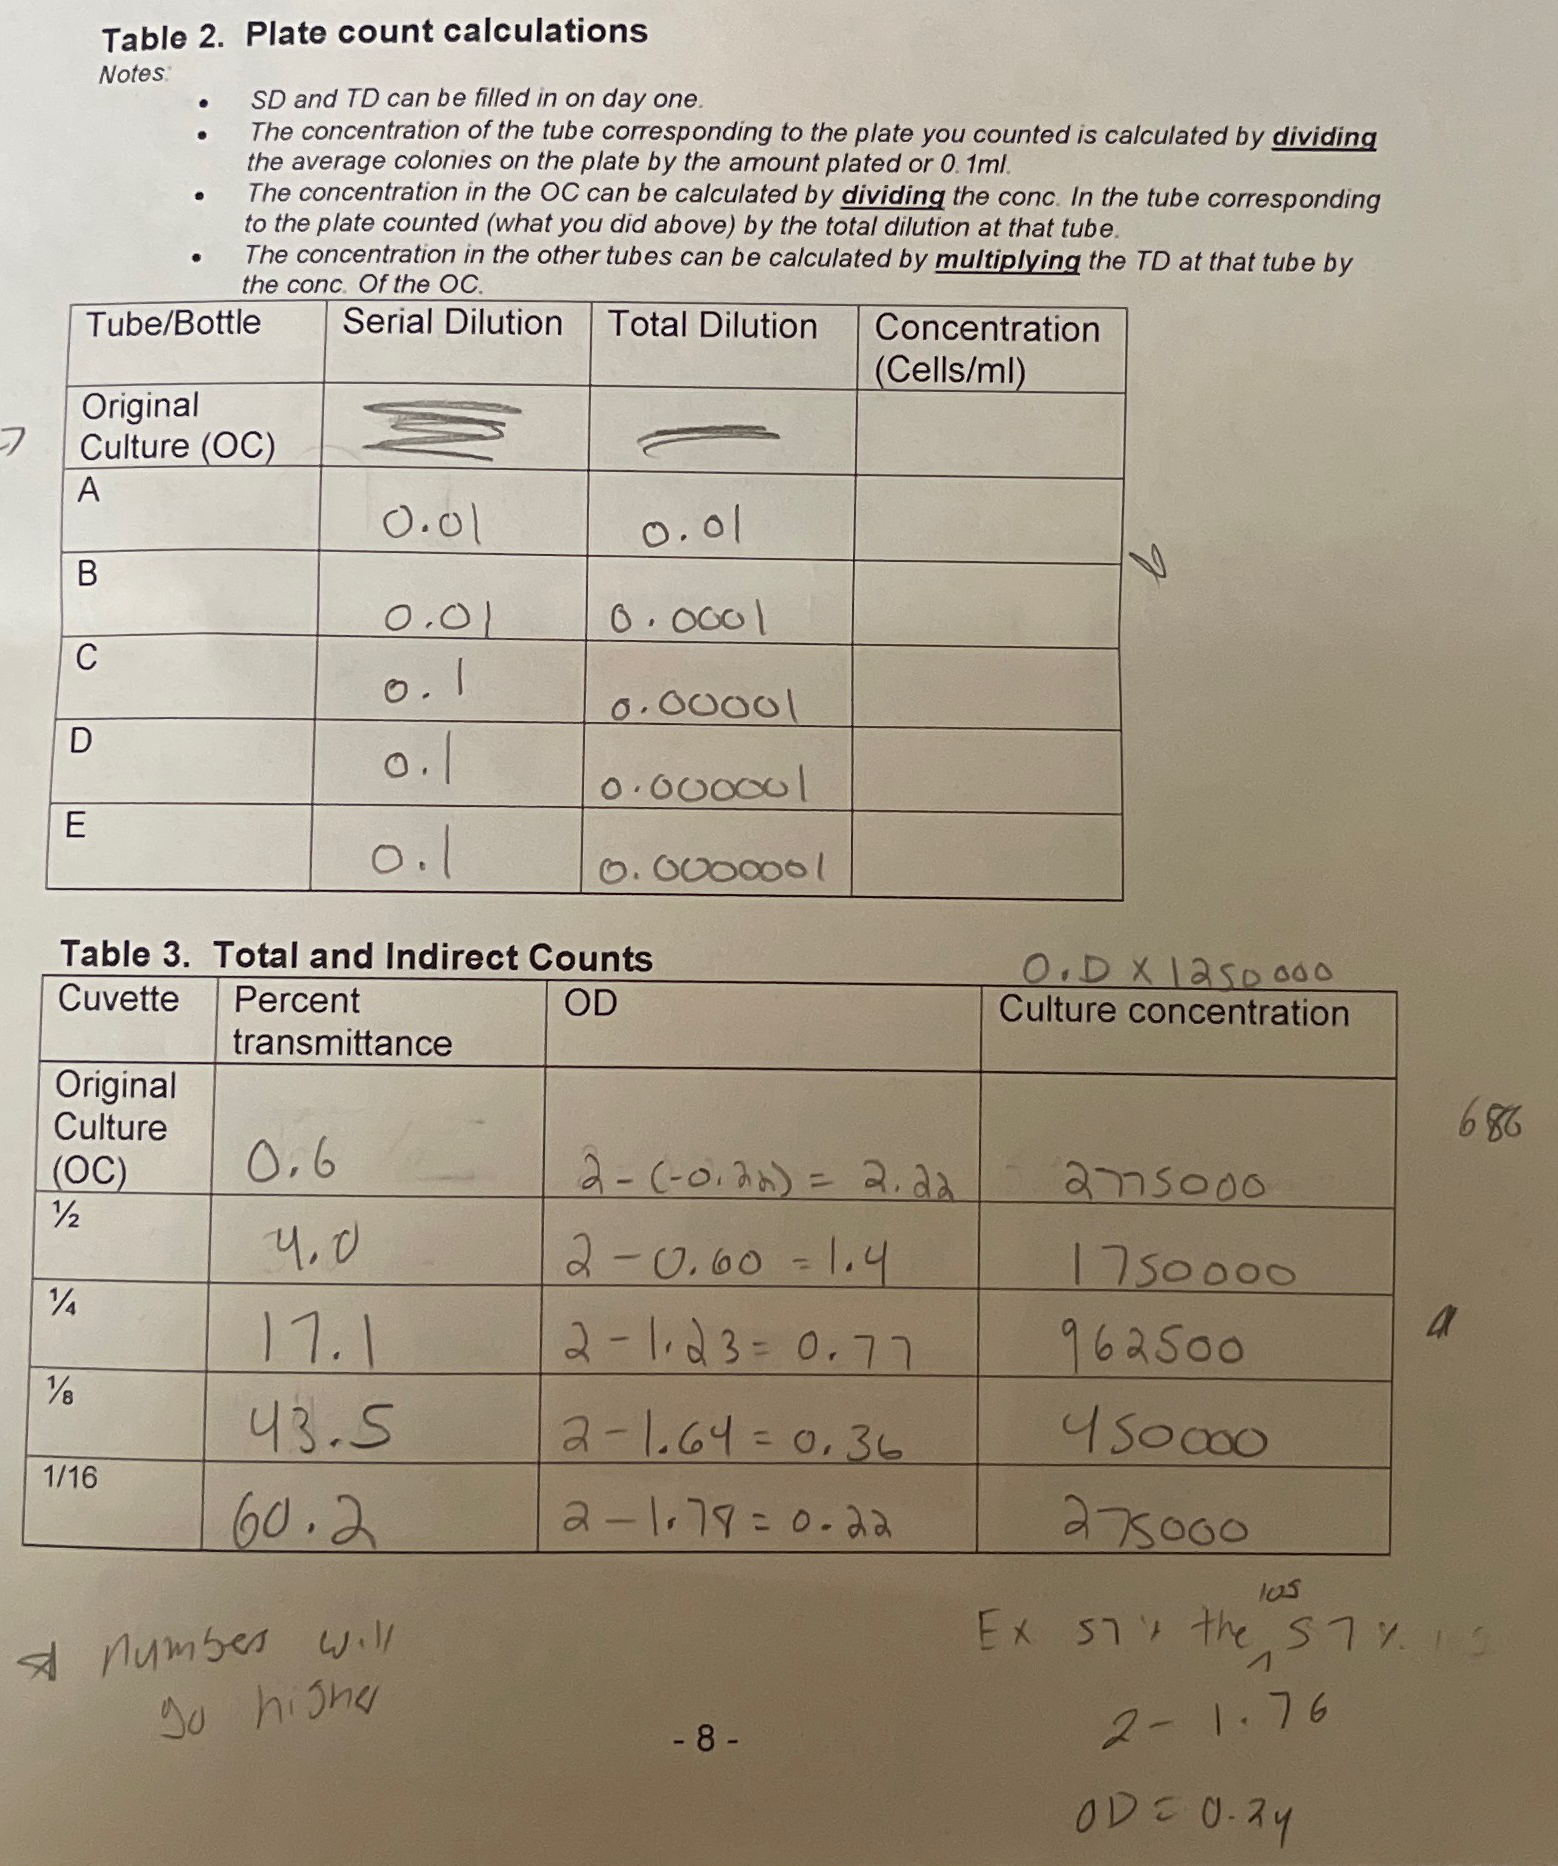 Table 2. Plate count calculations
Notes:
• SD and TD can be filled in on day one.
• The concentration of the tube corresponding to the plate you counted is calculated by dividing
the average colonies on the plate by the amount plated or 0.1ml.
• The concentration in the OC can be calculated by dividing the conc. In the tube corresponding
to the plate counted (what you did above) by the total dilution at that tube.
• The concentration in the other tubes can be calculated by multiplying the TD at that tube by
the conc. Of the OC.
Tube/Bottle Serial Dilution Total Dilution Concentration
(Cells/ml)
Original
Culture (OC)
A 0.01 0.01
B 0.01 0.0001
C 0.1 0.00001
D 0.1 0.000001
E 0.1 0.0000001
Table 3. Total and Indirect Counts
O.D X 1250000
Cuvette Percent OD Culture concentration
transmittance
Original
Culture
(OC) 0.6 2-(-0.22) = 2.22 2775000
686
½ 4.0 2-0.60 = 1.4 1750000
¼ 17.1 2-1.23 = 0.77 962500
⅛ 43.5 2-1.64 = 0.36 450000
1/16 60.2 2-1.78 = 0.22 275000
numbers will
go higher
Ex 57% the log 57%
2-1.76
OD = 0.24
- 8 -